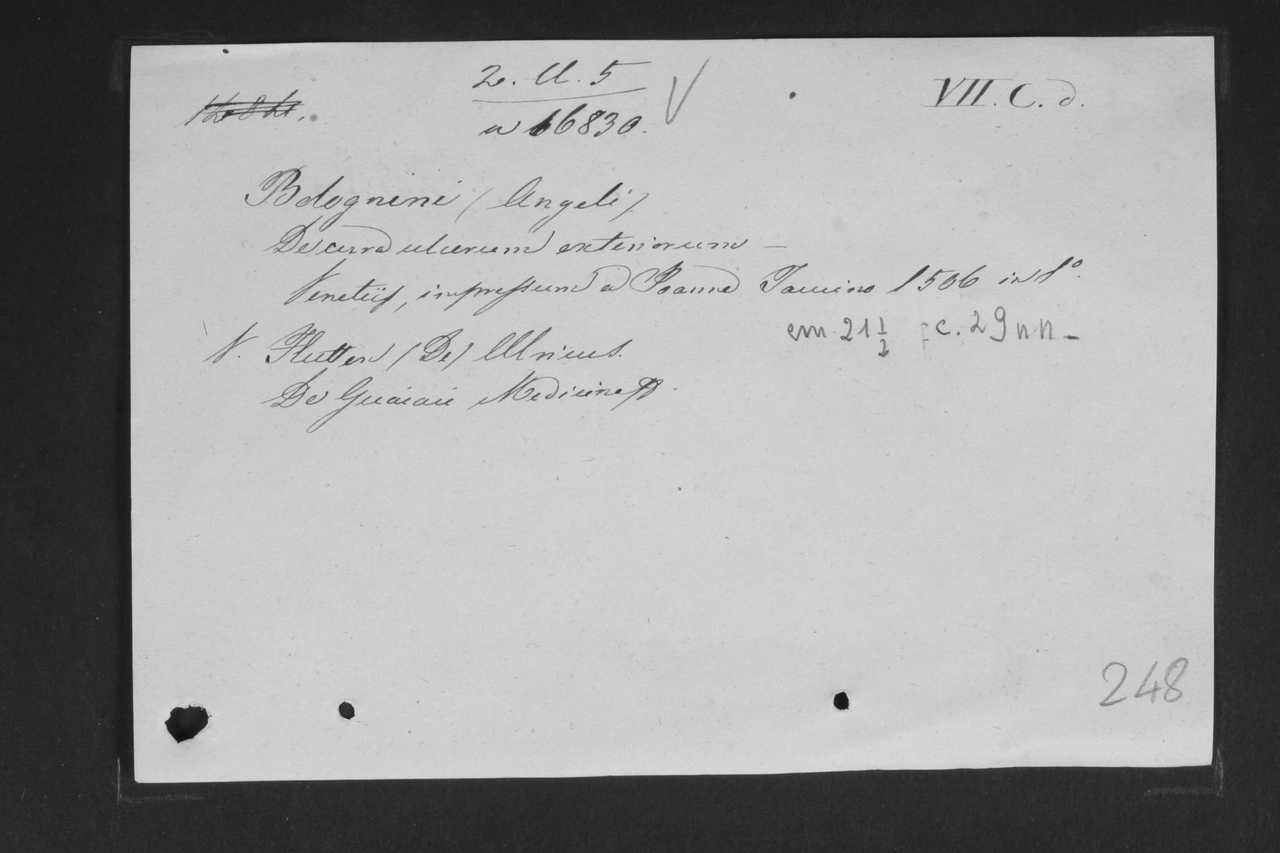 2. U. 5
VII. C. d.
a 16830.
Bolognini (Angeli)
De cura ulcerum exteriorum —
Venetiis, impressum a Joanne Tacuino 1506 in
cm 21 1/2 c. 29 n n —
V. Hutten (De) Ulricus.
De Guaiaci Medicina
248